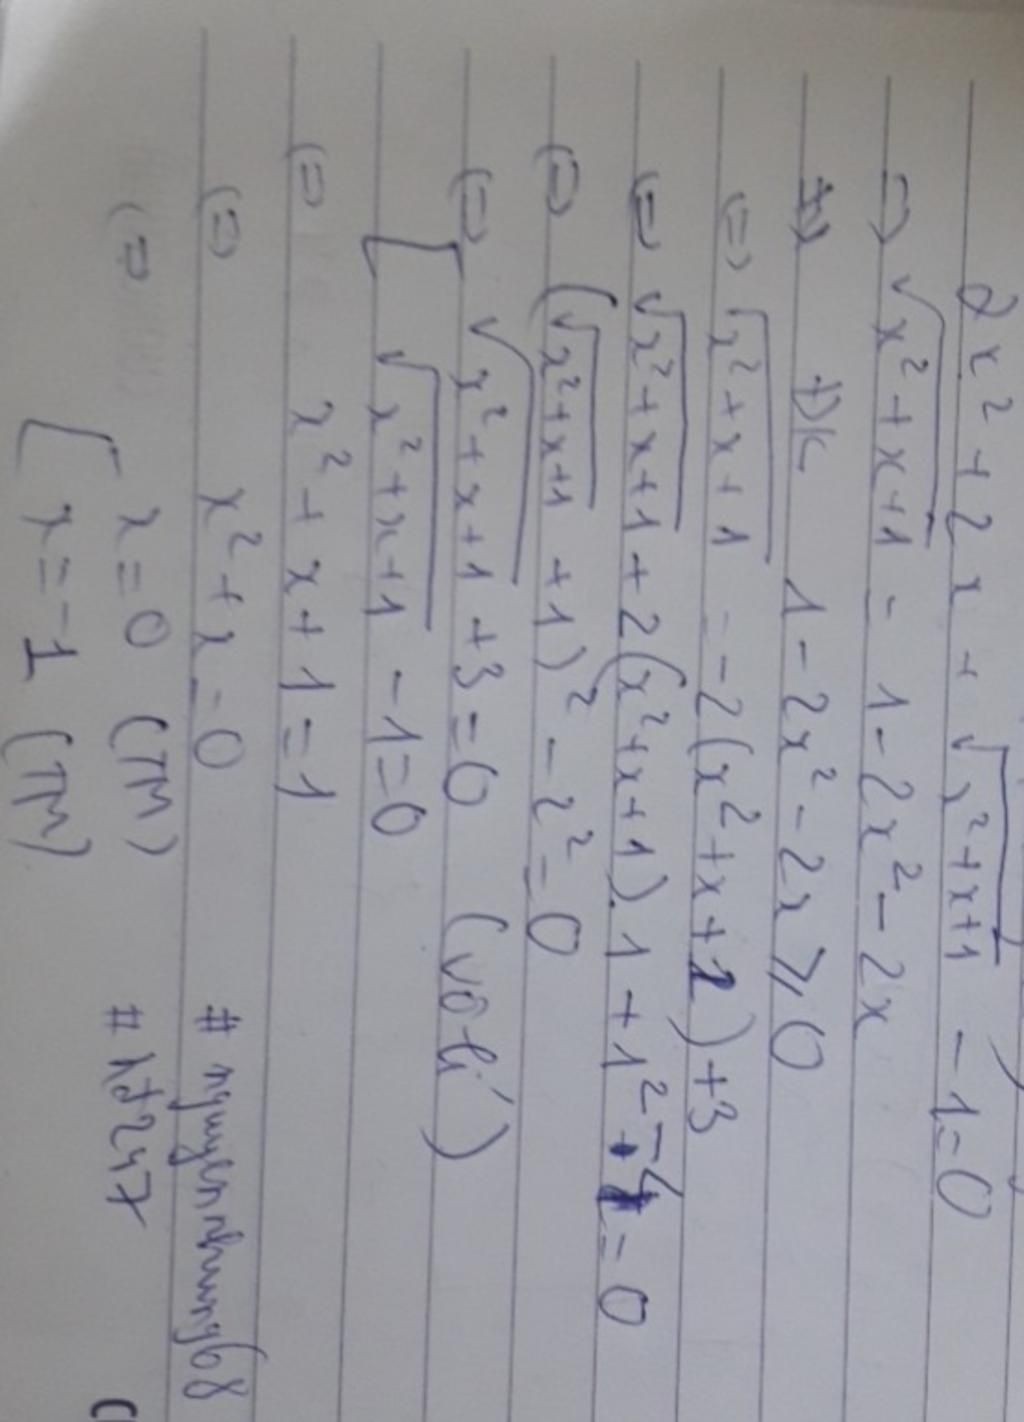 2x² + 2x + √(x²+x+1) - 1 = 0
=> √(x²+x+1) = 1 - 2x² - 2x
ĐK 1 - 2x² - 2x ≥ 0
(=) √(x²+x+1) = -2(x²+x+1) + 3
(=) √(x²+x+1) + 2(x²+x+1).1 + 1² - 4 = 0
(=) (√(x²+x+1) + 1)² - 2² = 0
(=) [ √(x²+x+1) + 3 = 0 (vô lí)
√(x²+x+1) - 1 = 0
(=) x² + x + 1 = 1
(=) x² + x = 0 # nguyennhung68
(=) [ x = 0 (TM) # hđ247
x = -1 (TM)